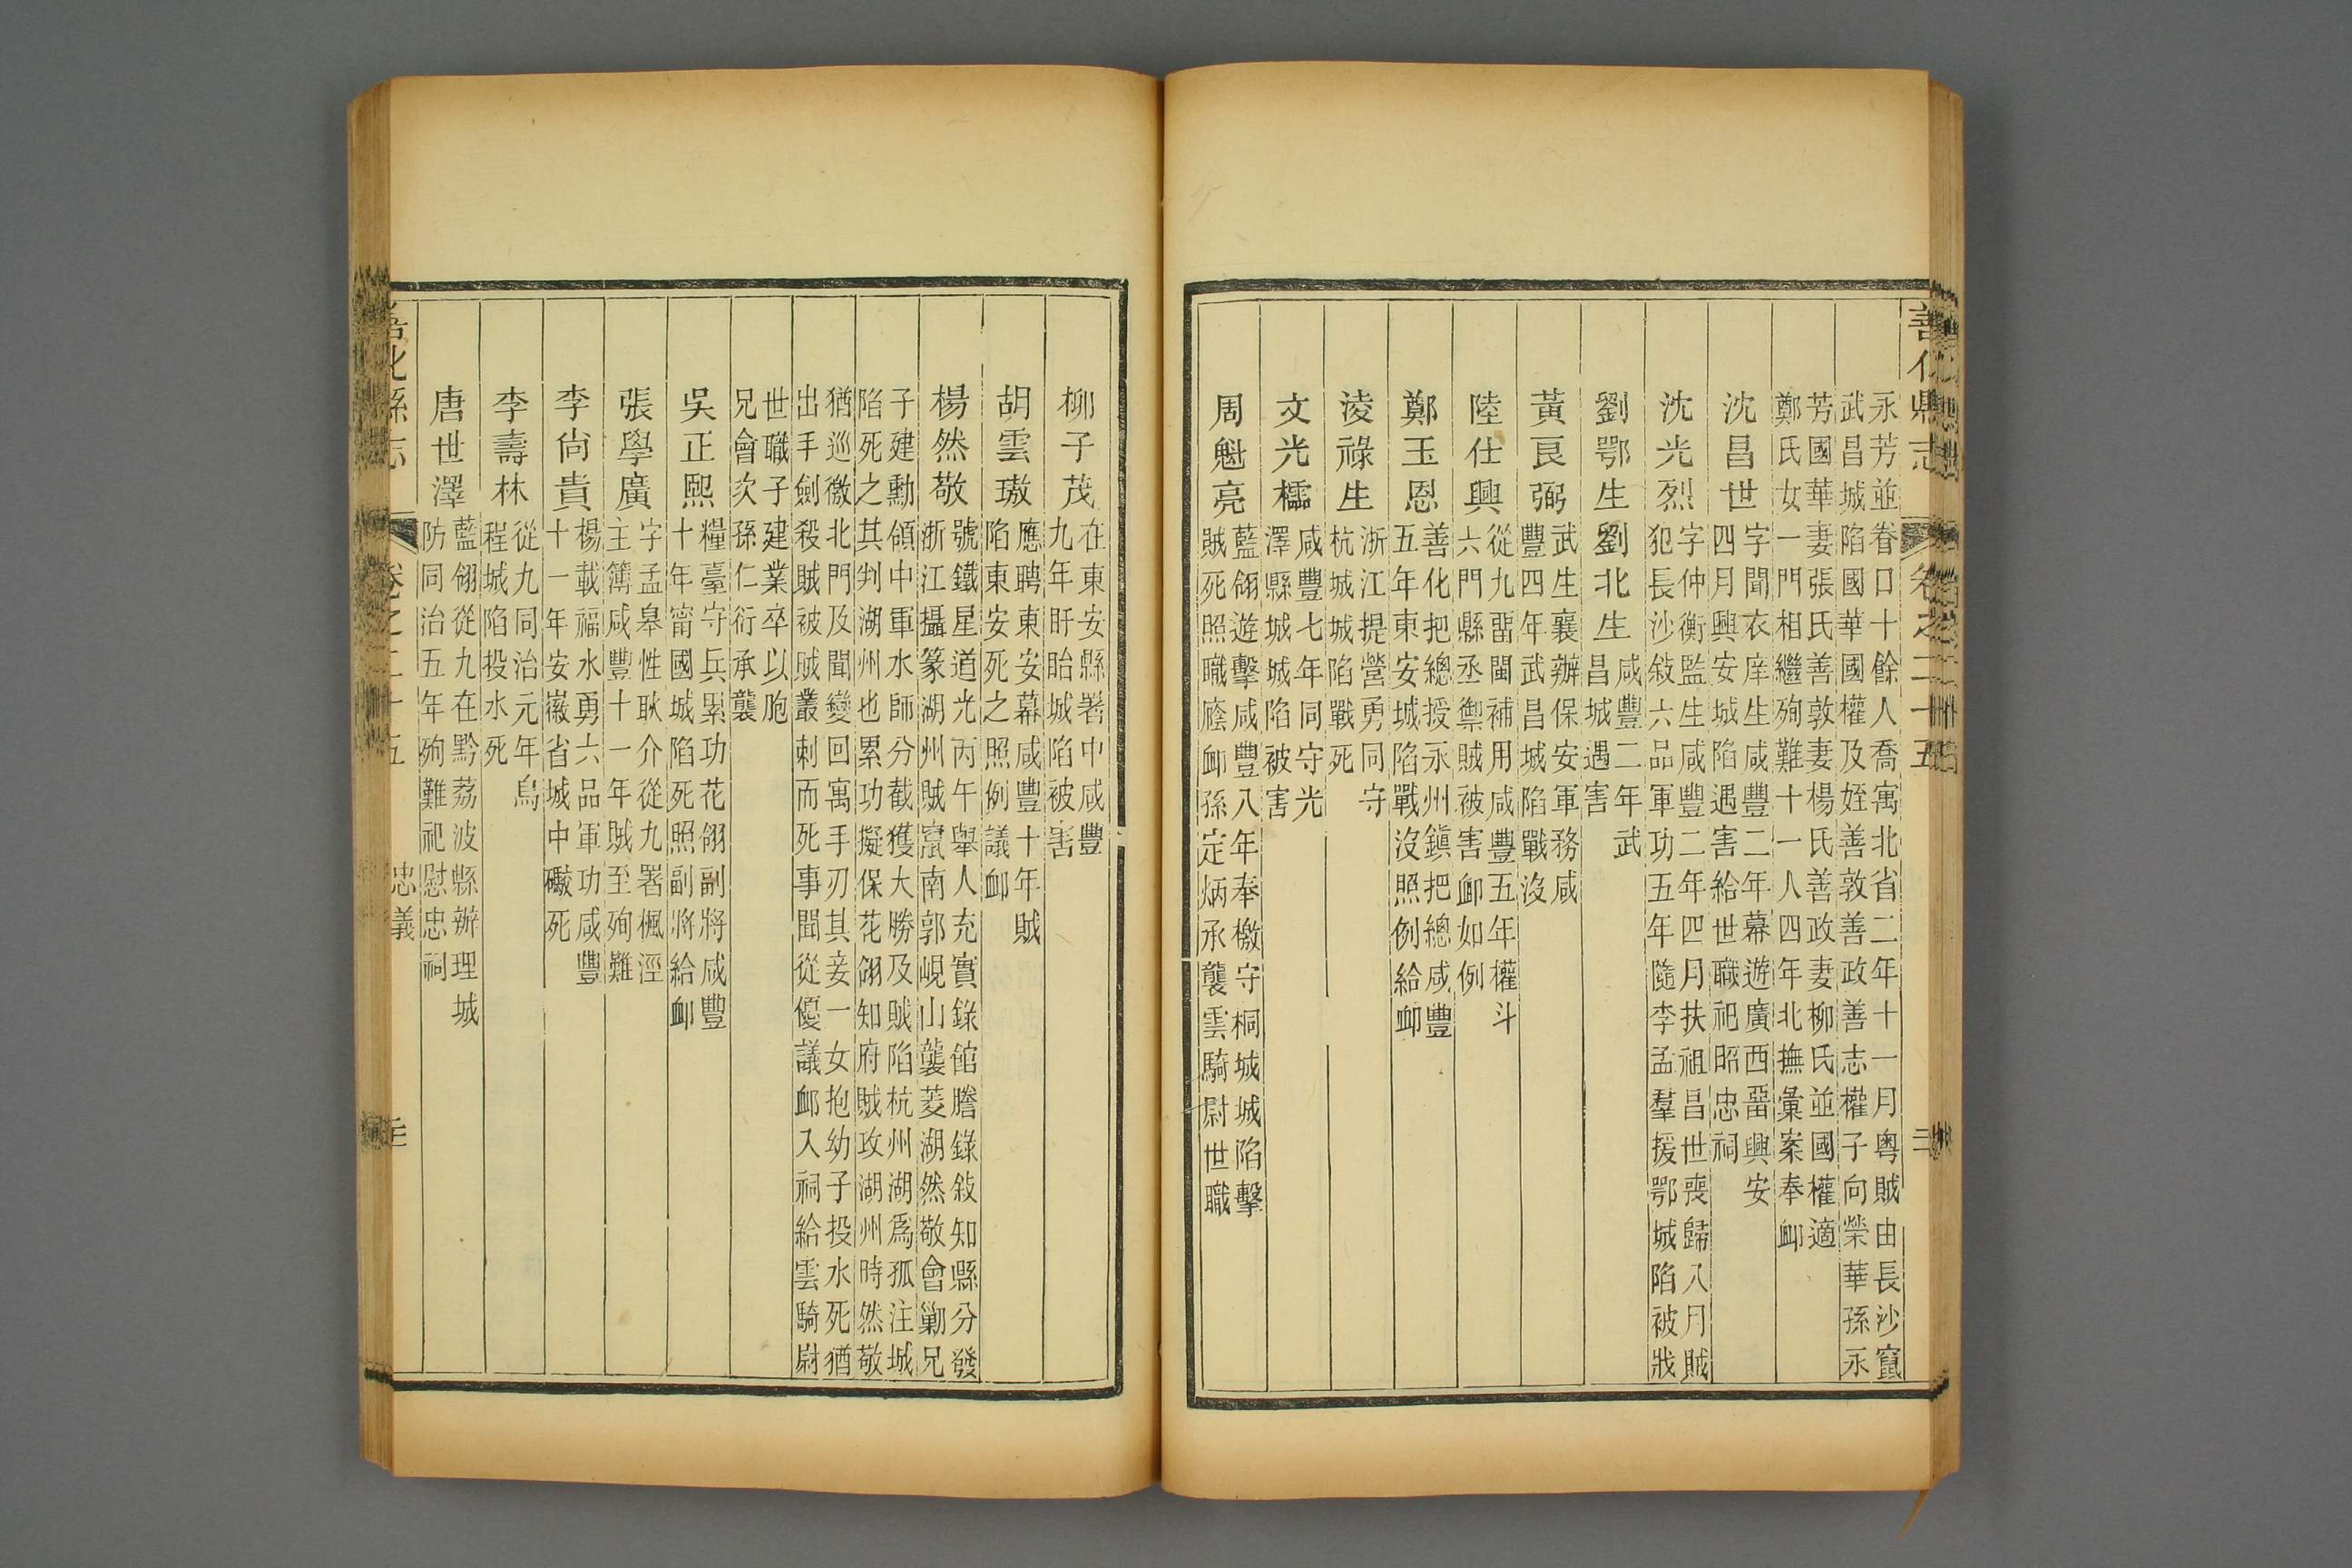 善化縣志 卷之二十五
永芳並眷口十餘人喬寓北省二年十一月粤賊由長沙竄
武昌城陷國華國權及姪善敦善政善志權子向榮華孫永
芳國華妻張氏善敦妻楊氏善政妻柳氏並國權適
鄭氏女一門相繼殉難十一人四年北撫彙案奉卹
沈昌世字聞衣庠生咸豐二年幕遊廣西畱興安
四月興安城陷遇害給世職祀昭忠祠
沈光烈字仲衡監生咸豐二年四月扶祖昌世喪歸八月賊
犯長沙敍六品軍功五年隨李孟羣援鄂城陷被戕
劉鄂生劉北生咸豐二年武
昌城遇害
黃良弼武生襄辦保安軍務咸
豐四年武昌城陷戰沒
陸仕興從九畱閩補用咸豐五年權斗
六門縣丞禦賊被害卹如例
鄭玉恩善化把總授永州鎭把總咸豐
五年東安城陷戰沒照例給卹
淩祿生浙江提營勇同守
杭城城陷戰死
文光櫺咸豐七年同守光
澤縣城城陷被害
周魁亮藍翎遊擊咸豐八年奉檄守桐城城陷擊
賊死照職廕卹孫定炳承襲雲騎尉世職
柳子茂在東安縣署中咸豐
九年盱眙城陷被害
胡雲璈應聘東安幕咸豐十年賊
陷東安死之照例議卹
楊然敬號鐵星道光丙午舉人充實錄館謄錄敍知縣分發
浙江攝篆湖州賊竄南郭峴山襲菱湖然敬會勦兄
子建勳領中軍水師分截獲大勝及賊陷杭州湖爲孤注城
陷死之其判湖州也累功擬保花翎知府賊攻湖州時然敬
猶巡徼北門及聞變回寓手刃其妾一女抱幼子投水死猶
出手劍殺賊被賊叢刺而死事聞從優議卹入祠給雲騎尉
世職子建業卒以胞
兄會次孫仁衍承襲
吳正熙糧臺守兵累功花翎副將咸豐
十年甯國城陷死照副將給卹
張學廣字孟皋性耿介從九署楓涇
主簿咸豐十一年賊至殉難
李尙貴楊載福水勇六品軍功咸豐
十一年安徽省城中礮死
李壽林從九同治元年烏
程城陷投水死
唐世澤藍翎從九在黔荔波縣辦理城
防同治五年殉難祀慰忠祠
善化縣志 卷之二十五 忠義